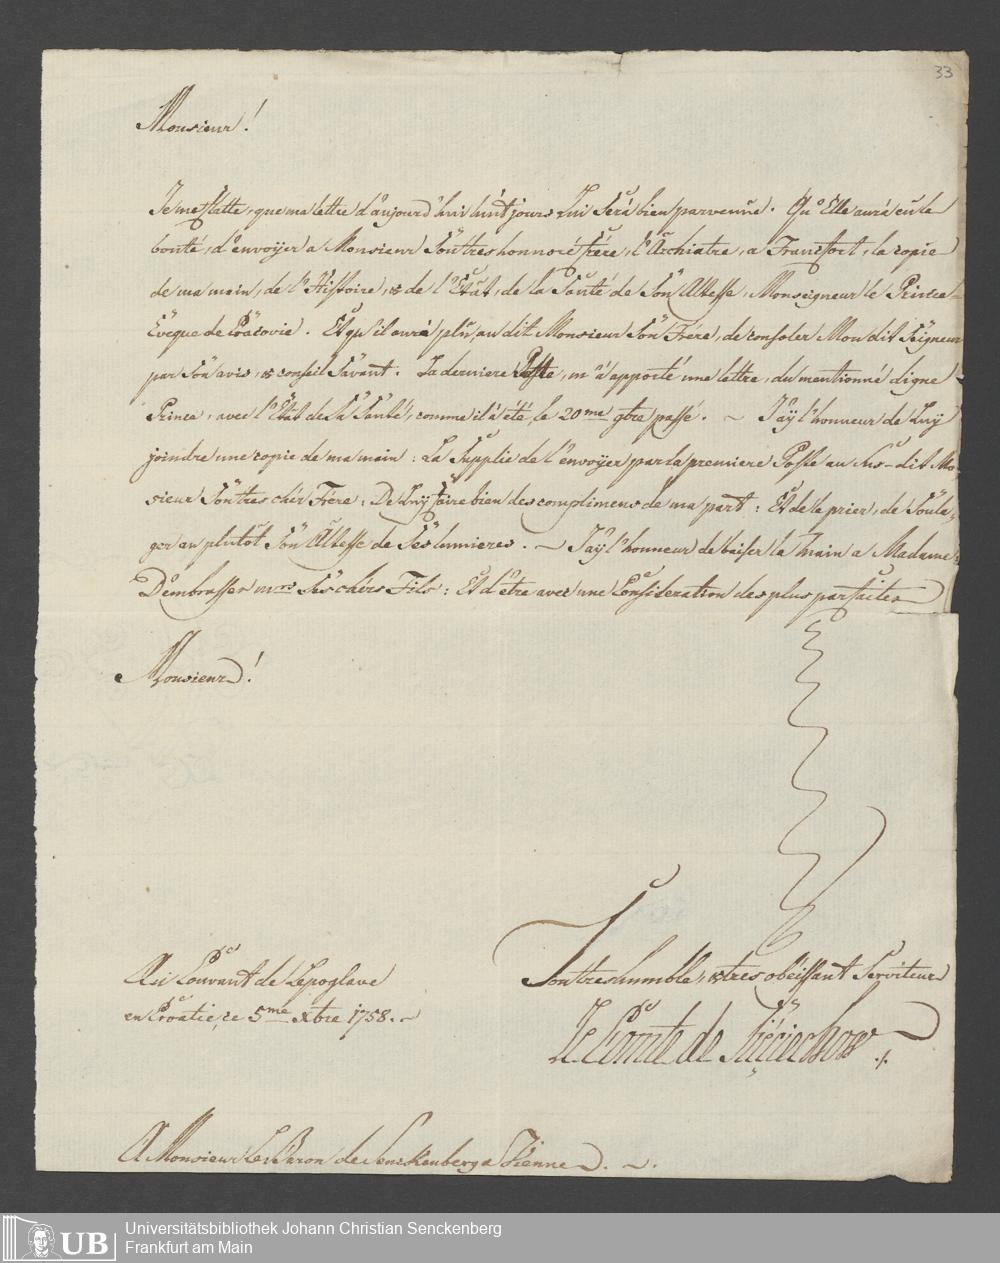 33
Monsieur!
Je me flatte, que ma lettre d'aujourd'hui huit jours Lui Sera bien parvenue. Qu'Elle aura eu la
bonté, d'envoÿer a Monsieur Son tres honnoré frére, l'Archiatre, a Francfort, la copie
de ma main, de l'Histoire, & de l'Etat, de la Santé de Son Altesse, Monseigneur le Prince
Evêque de Cracovie. Et qu'il aura plû, au dit Monsieur Son Frére, de consoler Mon dit Seigneur
par Son avis, & conseil Savant. La derniere Poste, m'a apporté une lettre, du mentionné digne
Prince, avec l'Etat de Sa Santé, comme il a été, le 20me 9bre passé. ~ J'aÿ l'honneur de Luÿ
joindre une copie de ma main: La Supplie de l'envoÿer par la premiere Poste au Sus-dit Mo,
sieur Son tres chér Frére; De Luÿ faire bien des complimens de ma part: Et de le prier, de Soula,
ger au plutôt Son Altesse de Ses lumieres. ~ J'aÿ l'honneur de baiser la main a Madame:
D'embrasser mrs Ses chérs Fils: Et d'être avec une Consideration des plus parfaites
Monsieur!
Son tres humble, & tres obéissant Serviteur
Le Comte de
Au Couvant de Lepoglave
en Croatie, ce 5me Xbre 1758. ~
A Monsieur Le Baron de Senckenberg a Vienne. ~.
UB
Universitätsbibliothek Johann Christian Senckenberg
Frankfurt am Main